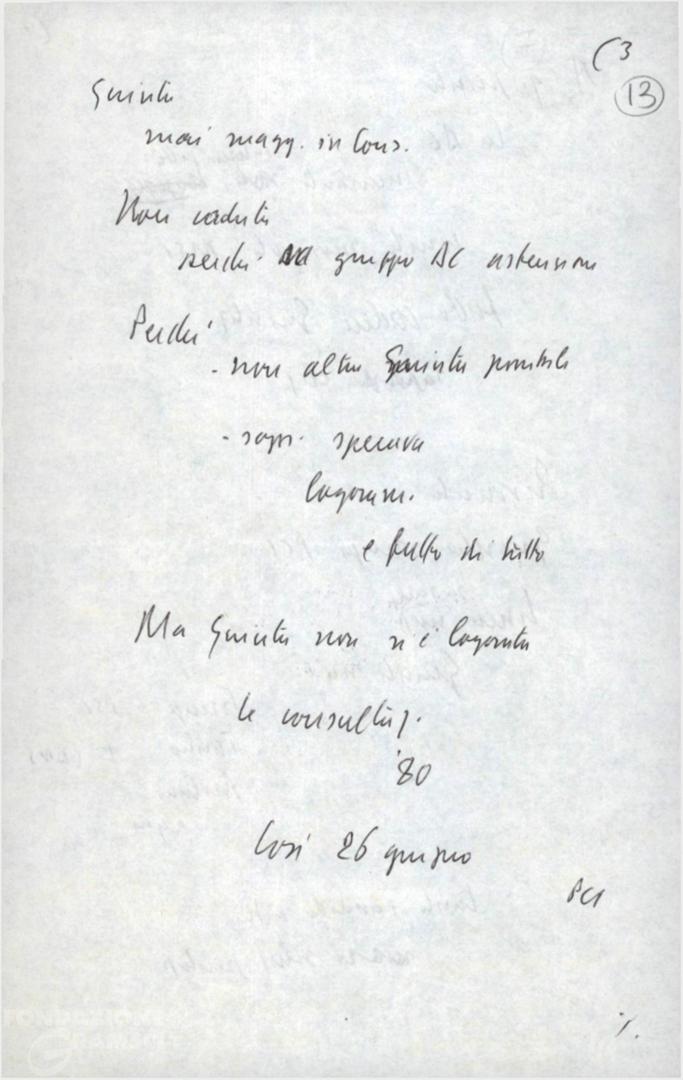 (3
13
Giunta
mai magg. in Cons.
Non caduta
perché gruppo DC astensione
Perché
- non altra Giunta possibile
- sopr. sperava
logoram.
e frutto di tutto
Ma Giunta non si è logorata
le consultaz.
'80
Così 26 giugno
PCI
./.
FONDAZIONE
GRAMSCI